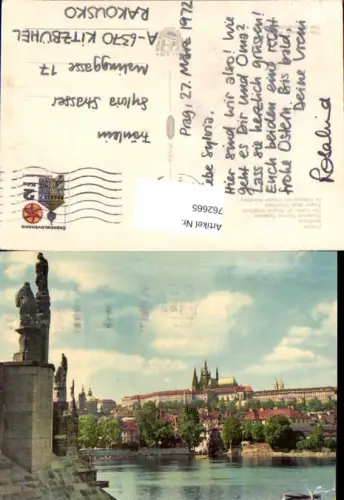 Prag, 27. März 1972
Liebe Sylvia.
Hier sind wir also! Wie
geht es Dir und Oma?
Lass sie herzlich grüssen!
Euch beiden eine recht
frohe Ostern. Bis bald,
Deine Vroni
Rosalind
Fräulein
Sylvia Strasser
Malinggasse 17
A-6370 KITZBÜHEL
RAKOUSKO
ČESKOSLOVENSKO
Artikel Nr.
762665